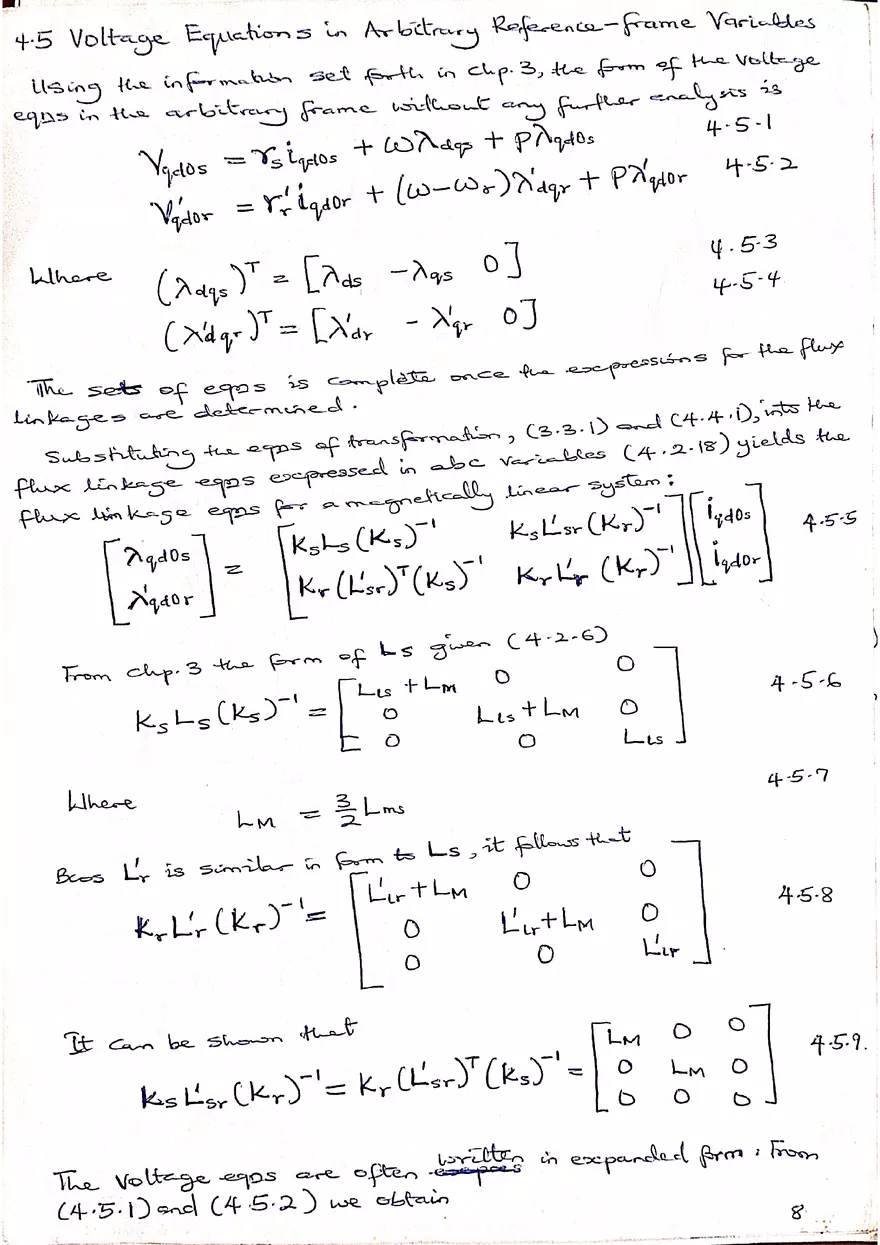 4.5 Voltage Equations in Arbitrary Reference-frame Variables
Using the information set forth in chp. 3, the form of the voltage
eqns in the arbitrary frame without any further analysis is
V_qd0s = r_s i_qd0s + ωλ_dqs + Pλ_qd0s 4.5.1
V'_qd0r = r'_r i'_qd0r + (ω-ω_r)λ'_dqr + Pλ'_qd0r 4.5.2
Where (λ_dqs)^T = [λ_ds -λ_qs 0] 4.5.3
(λ'_dqr)^T = [λ'_dr -λ'_qr 0] 4.5.4
The sets of eqns is complete once the expressions for the flux
linkages are determined.
Substituting the eqns of transformation, (3.3.1) and (4.4.1), into the
flux linkage eqns expressed in abc variables (4.2.18) yields the
flux linkage eqns for a magnetically linear system:
[λ_qd0s] = [K_s L_s (K_s)^-1 K_s L'_sr (K_r)^-1] [i_qd0s] 4.5.5
[λ'_qd0r] [K_r (L'_sr)^T (K_s)^-1 K_r L'_r (K_r)^-1] [i_qd0r]
From chp. 3 the form of L_s given (4.2.6)
K_s L_s (K_s)^-1 = [L_ls + L_M 0 0 4.5.6
0 L_ls + L_M 0
0 0 L_ls]
Where L_M = 3/2 L_ms 4.5.7
Bcos L'_r is similar in form to L_s, it follows that
K_r L'_r (K_r)^-1 = [L'_lr + L_M 0 0 4.5.8
0 L'_lr + L_M 0
0 0 L'_lr]
It can be shown that
K_s L'_sr (K_r)^-1 = K_r (L'_sr)^T (K_s)^-1 = [L_M 0 0 4.5.9.
0 L_M 0
0 0 0]
The voltage eqns are often written in expanded form. From
(4.5.1) and (4.5.2) we obtain
8